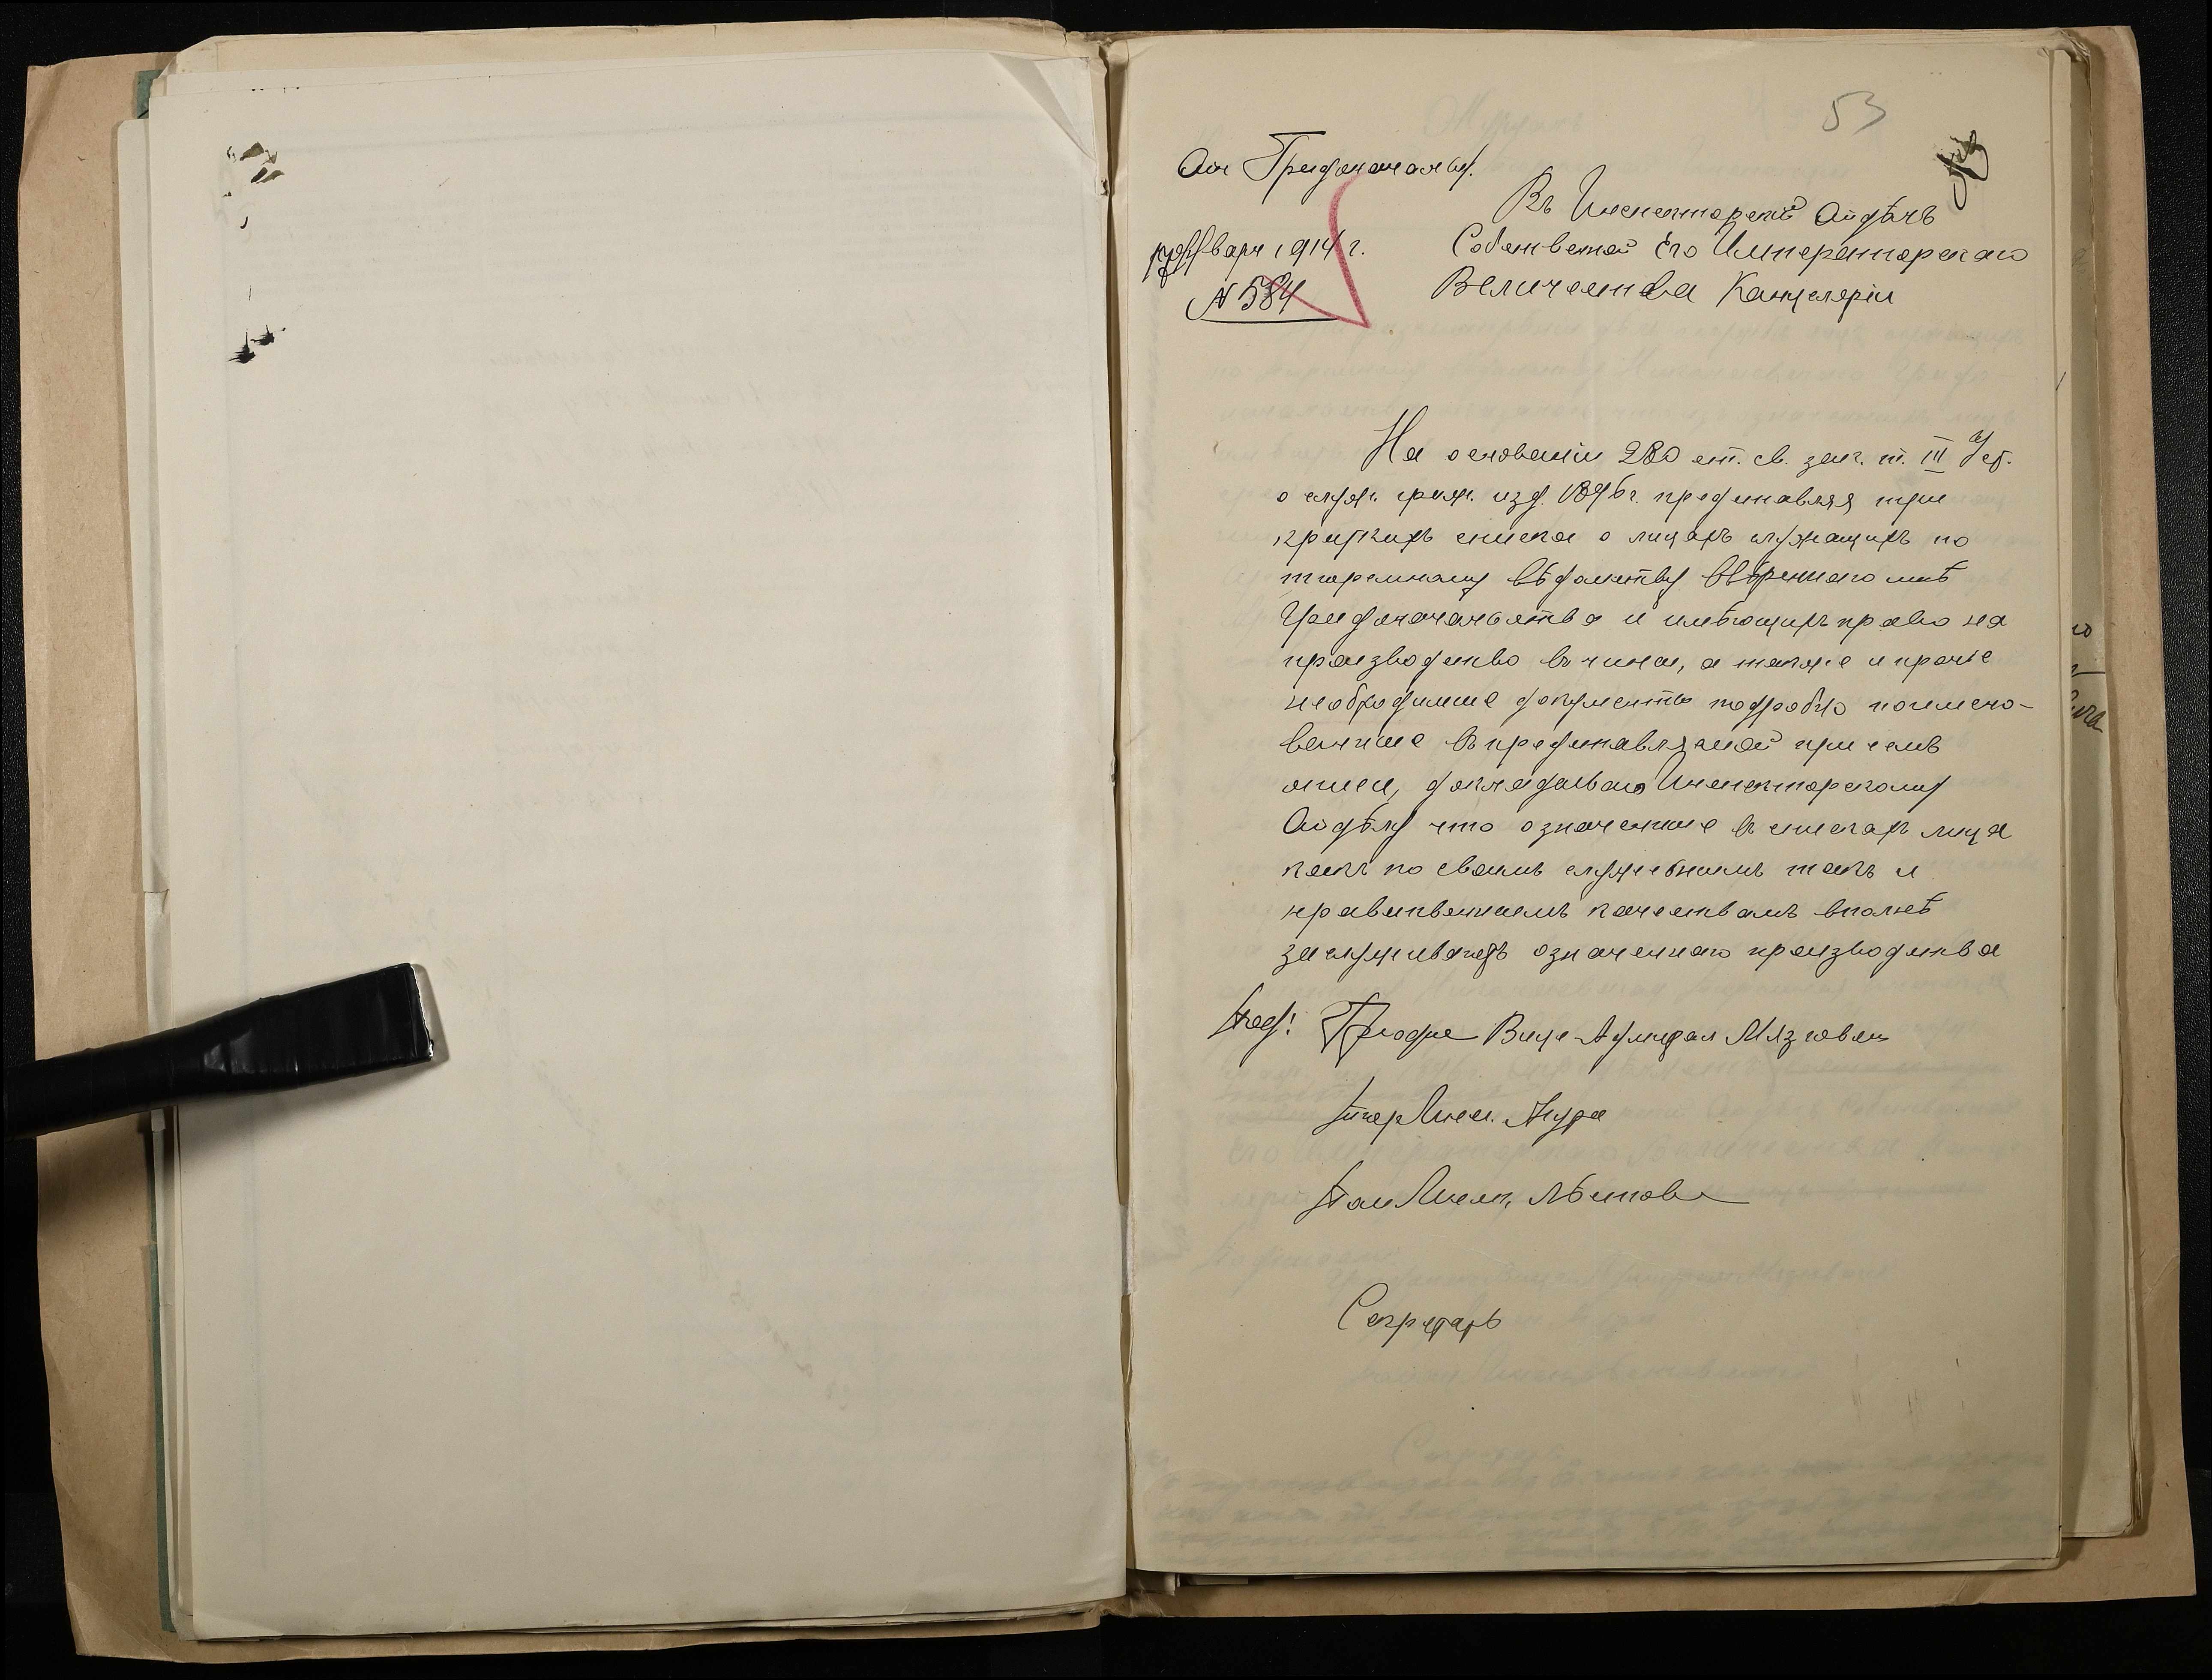 53
От Градоначальн.
Января 1914 г.
N 584
Въ Инспекторскій Отдѣлъ
Собственной Его Императорскаго
Величества Канцеляріи
На основаніи 280 ст. св. зак. т. III Уст.
о служ. граж. изд. 1896 г. представляя три
краткихъ списка о лицахъ служащихъ по
тюремному вѣдомству ввѣреннаго мнѣ
Градоначальства и имѣющихъ право на
производство въ чины, а также и прочіе
необходимые документы подробно поимено-
ванные въ представляемой при семъ
описи, докладываю Инспекторскому
Отдѣлу что означенные въ спискахъ лица
какъ по своимъ служебнымъ такъ и
нравственнымъ качествамъ вполнѣ
заслуживаютъ означеннаго производства
Градон Вице-Адмирал Мязговскій
Тюр Инсп.
Пом Инсп.
Секретарь